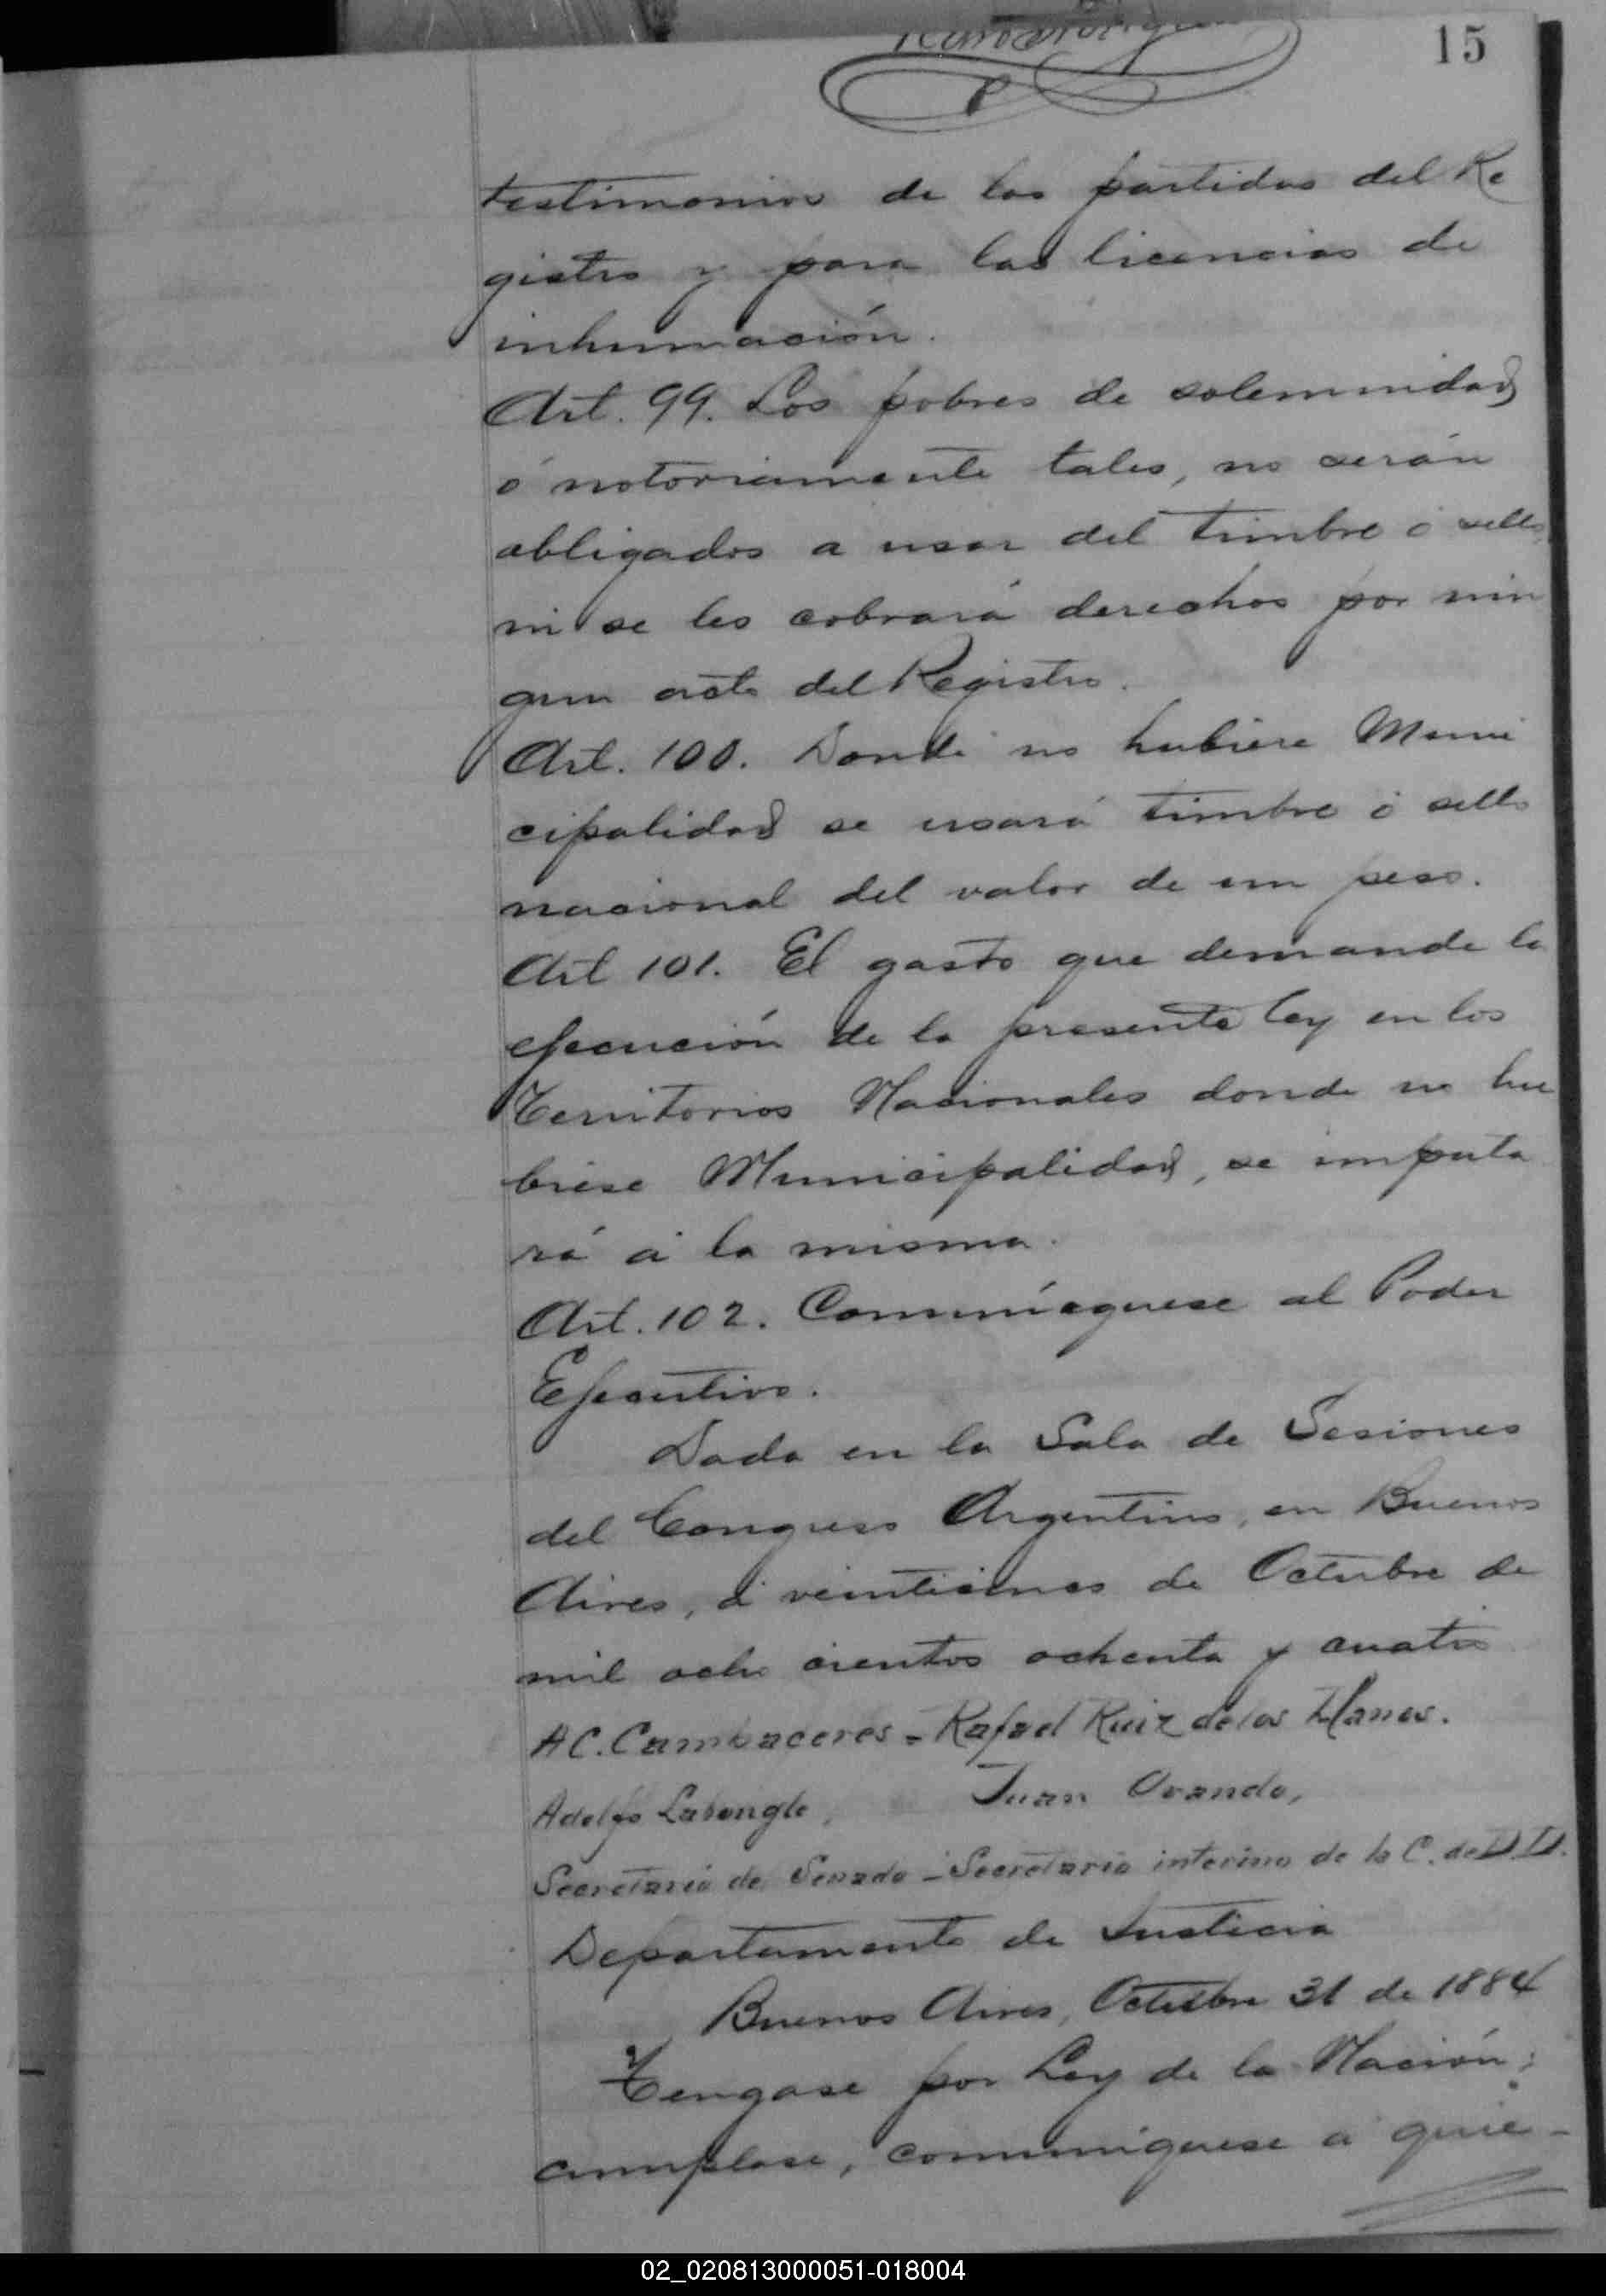 15
testimonios de las partidas del Re
gistro y para las licencias de
inhumación.
Art. 99. Los pobres de solemnidad
ó notoriamente tales, no serán
obligados a usar del timbre ó sello,
ni se les cobrará derechos por nin
gun acto del Registro.
Art. 100. Donde no hubiere Muni
cipalidad se usará timbre ó sello
nacional del valor de un peso.
Art 101. El gasto que demande la
ejecución de la presente ley en los
Territorios Nacionales donde no hu
biese Municipalidad, se imputa
rá á la misma.
Art. 102. Comuníquese al Poder
Ejecutivo.
Dada en la Sala de Sesiones
del Congreso Argentino, en Buenos
Aires, á veinticinco de Octubre de
mil ocho cientos ochenta y cuatro
A C. Cambaceres - Rafael Ruiz de los Llanos.
Adolfo Labougle, Juan Ovando,
Secretario de Senado - Secretario interino de la C. de D.D.
Departamento de Justicia
Buenos Aires, Octubre 31 de 1884
Tengase por Ley de la Nación;
cumplase, comuniquese a quie-
02_020813000051-018004